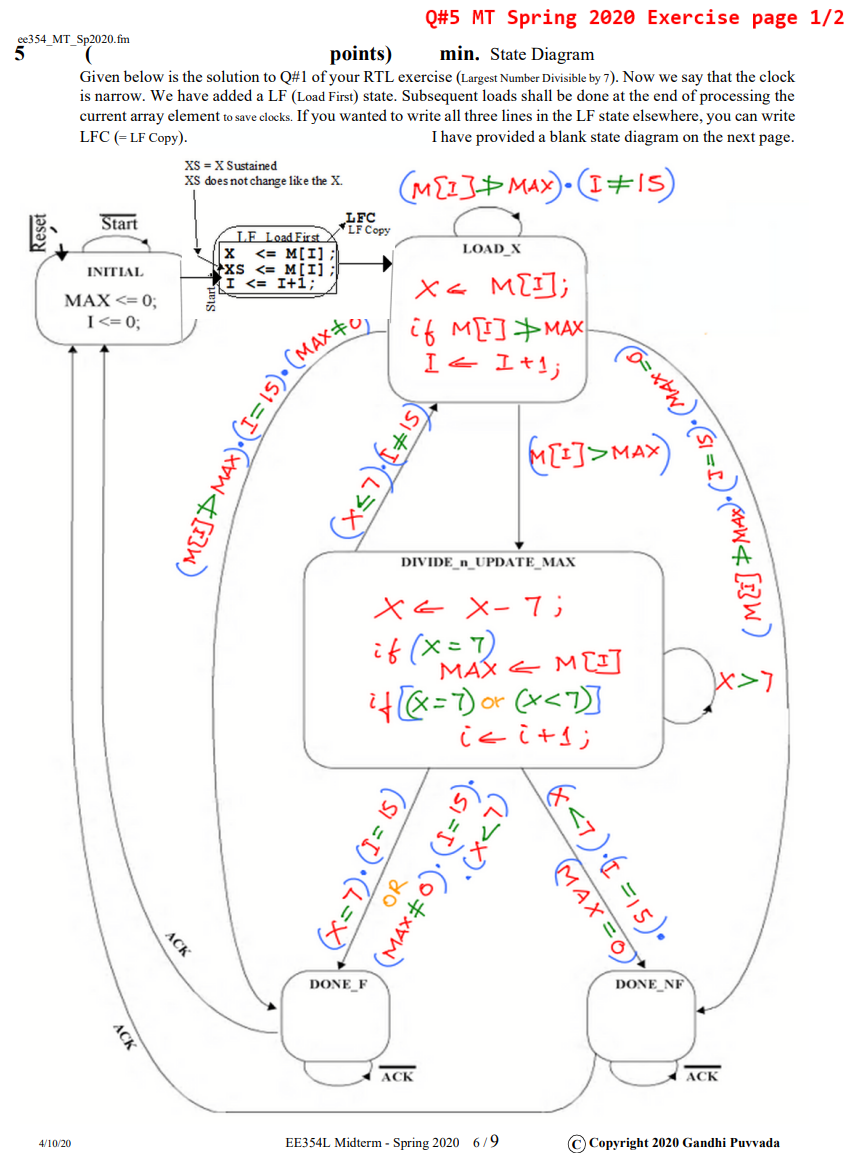 Q#5 MT Spring 2020 Exercise page 1/2
ee354_MT_Sp2020.fm
5 ( points) min. State Diagram
Given below is the solution to Q#1 of your RTL exercise (Largest Number Divisible by 7). Now we say that the clock
is narrow. We have added a LF (Load First) state. Subsequent loads shall be done at the end of processing the
current array element to save clocks. If you wanted to write all three lines in the LF state elsewhere, you can write
LFC (= LF Copy). I have provided a blank state diagram on the next page.
XS = X Sustained
XS does not change like the X.
(M[I]≯MAX)·(I≠15)
Reset
Start
LFC
LF Copy
LF Load First
X <= M[I];
XS <= M[I];
I <= I+1;
Start
INITIAL
MAX <= 0;
I <= 0;
LOAD_X
X <= M[I];
if M[I]≯MAX
I <= I+1;
(M[I]≯MAX)·(I=15)·(MAX≠0)
(M[I]≯MAX)·(I=15)·(MAX=0)
(X≤7)·(I≠15)
(M[I]>MAX)
DIVIDE_n_UPDATE_MAX
X <= X-7;
if (X=7)
MAX <= M[I]
if[(X=7) or (X<7)]
i <= i+1;
X>7
(X=7)·(I=15)
OR
(MAX≠0)·(I=15)·
·(X<7)
(X<7)·(I=15)·
(MAX=0)
ACK
ACK
DONE_F
ACK
DONE_NF
ACK
4/10/20
EE354L Midterm - Spring 2020 6 / 9
© Copyright 2020 Gandhi Puvvada